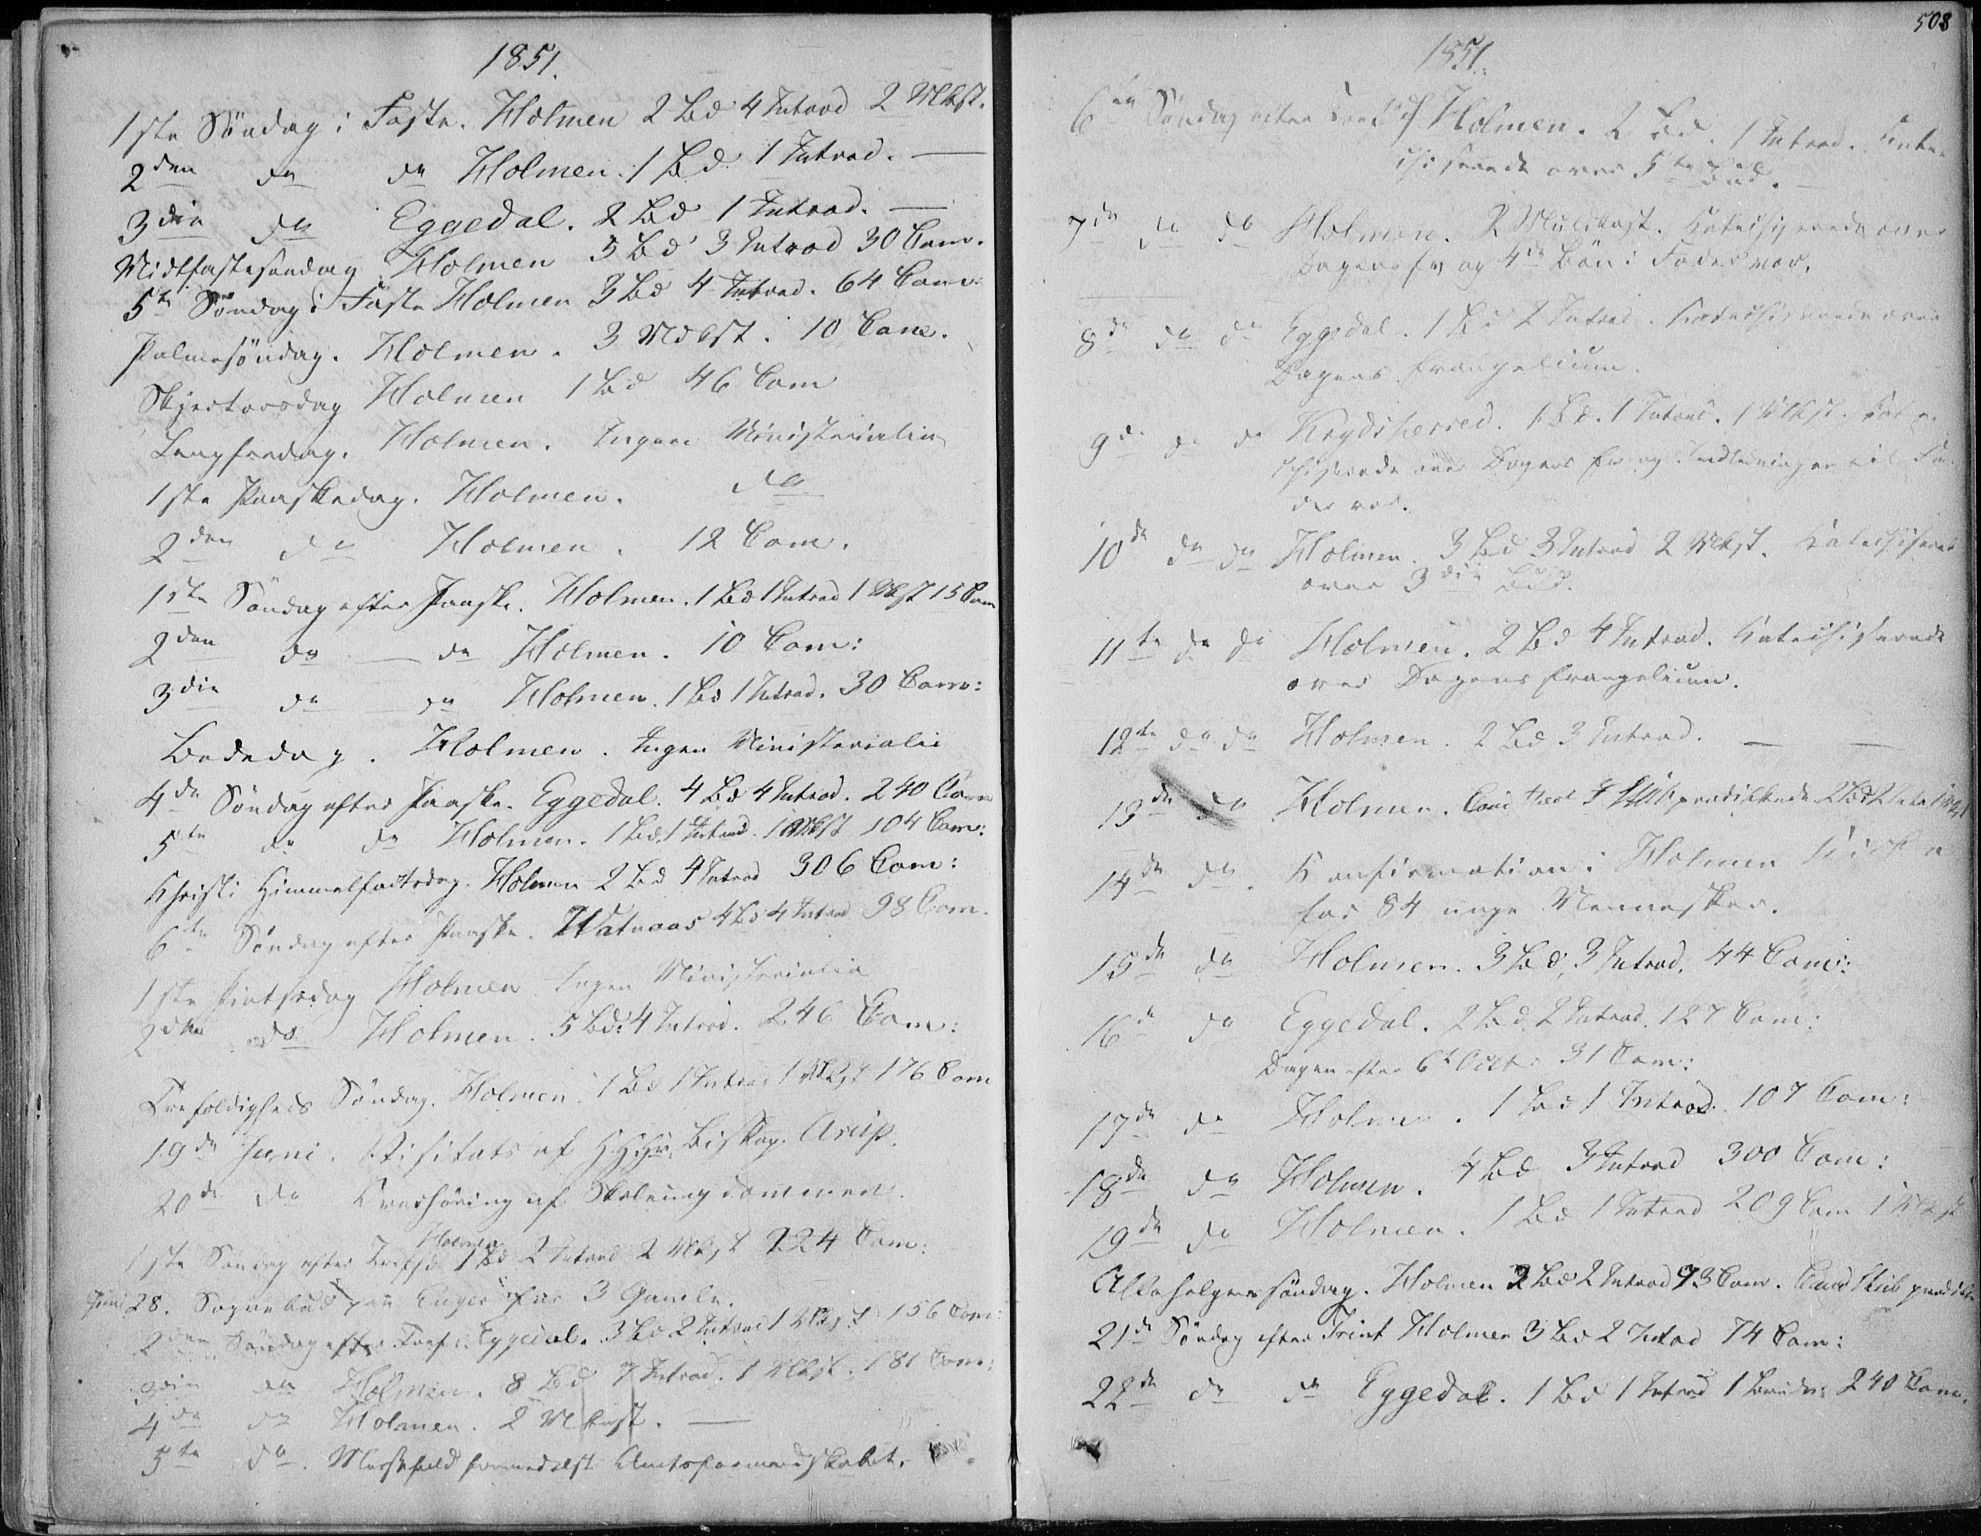 1851.
1ste Söndag i Faste. Holmen 2 Bd 4 Introd 2 Mkst.
2den do do Holmen. 1 Bd. 1 Introd. —
3die do Eggedal. 2 Bd 1 Introd. —
Midtfastesöndag Holmen 5 Bd 3 Introd 30 Com.
5te Söndag i Faste Holmen 3 Bd 4 Introd. 64 Com:
Palmesöndag. Holmen. 3 Mdkst. 10 Com.
Skjertorsdag Holmen 1 Bd 46 Com
Langfredag. Holmen. Ingen Ministerialia
1ste Paaskedag. Holmen. do
2den do Holmen. 12 Com.
1ste Söndag efter Paaske. Holmen. 1 Bd 1 Introd 1 Mkst 15 Com
2den do — do Holmen. 10 Com:
3die do — do Holmen. 1 Bd 1 Introd. 30 Com:
Bededag. Holmen. Ingen Ministerialia
4de Söndag efter Paaske. Eggedal. 4 Bd 4 Introd. 240 Com
5te do do Holmen. 1 Bd. 1 Introd. 1 Mkst 104 Com:
Christi Himmelfartsdag. Holmen 2 Bd 4 Introd 306 Com:
6te Söndag efter Paaske. Watnaas 4 Bd 4 Introd 98 Com.
1ste Pintsedag Holmen Ingen Ministerialia
2den do Holmen. 5 Bd: 4 Introd. 246 Com:
Trefoldigheds Söndag. Holmen. 1 Bd 1 Introd 1 Mkst 176 Com
19de Juni. Visitats af Biskop Arup.
20de do Overhöring af Skoleungdommen.
1ste Söndag efter Trefd. Holmen 1 Bd 2 Introd 2 Mkst 224 Com:
Juni 28. Sognebud paa Enger for 3 Gamle.
2den Söndag efter Tref: Eggedal. 3 Bd 2 Introd 1 Mkst 156 Com:
3die do Holmen. 8 Bd 7 Introd. 1 Mkst. 181 Com:
4de do Holmen. 2 Mkast. —
5te do. Messefald formedelst Amtsformandskabet.
508
1851.
6te Söndag efter Tref: Holmen. 2 Bd. 1 Introd. Kate-
chiserede over 5te Bud. —
7de do do Holmen. 2 Muldkast. Katechiserede over
Dagens Ev og 4de Bön i Fader vor.
8de do do Eggedal. 1 Bd 2 Introd. Katechiserede over
Dagens Evangelium.
9de do do Krydsherred. 1 Bd. 1 Introd. 1 Mkst. Kate-
chiserede over Dagens Ev og Indledningen til Fa-
der vor.
10de do do Holmen. 3 Bd 3 Introd 2 Mkst. Katechiserede
over 3die Bud.
11te do do Holmen. 2 Bd 4 Introd. Katechiserede
over Dagens Evangelium.
12te do do Holmen. 2 Bd 3 Introd. — —
13de do Holmen. Cand prædikede 2 Bd 2 Introd
14de do. Konfirmation i Holmen Kirke
for 84 unge Mennesker.
15de do Holmen. 3 Bd. 3 Introd. 44 Com:
16de do Eggedal. 2 Bd. 2 Introd. 127 Com:
Dagen efter 6te Octbr 31 Com:
17de do Holmen. 1 Bd 1 Introd. 107 Com:
18de do Holmen. 4 Bd 3 Introd 300 Com:
19de do Holmen. 1 Bd 1 Introd 209 Com 1 Mkst
Allehelgens söndag. Holmen 2 Bd 2 Introd 93 Com. Cand prædikede
21de Söndag efter Trint Holmen 3 Bd 2 Introd 74 Com:
22de do do Eggedal. 1 Bd 1 Introd 1 Brudv: 240 Com.